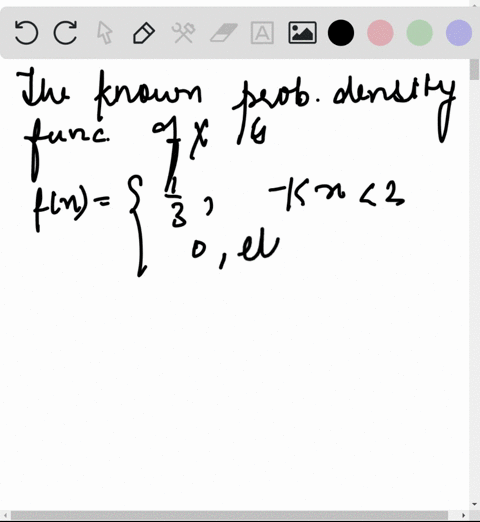 The known prob. density
func. of X is
f(x) = { 1/3, -1< x < 2
0, el